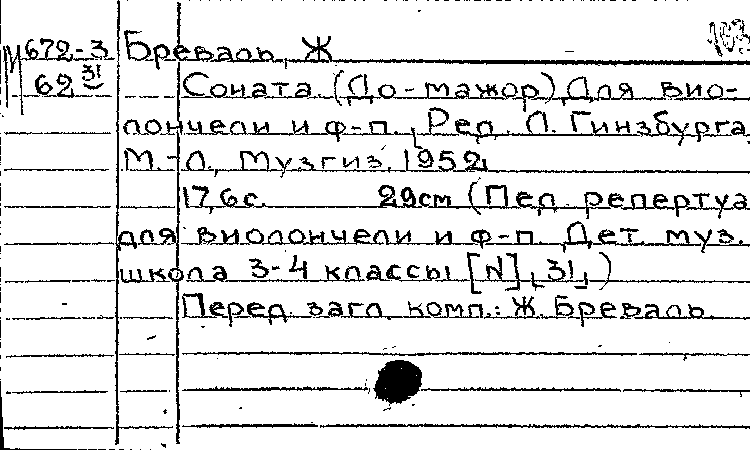 М672-3 Бреваль, Ж
62 31 Соната. (До-мажор) Для вио-
лончели и ф-п. Ред. Л. Гинзбурга,
М.-Л., Музгиз, 1952,
17,6 с. 29 см (Пед. репертуа
для виолончели и ф-п. Дет. муз.
школа 3-4 классы [N] 31)
Перед загл. комп.: Ж. Бреваль.